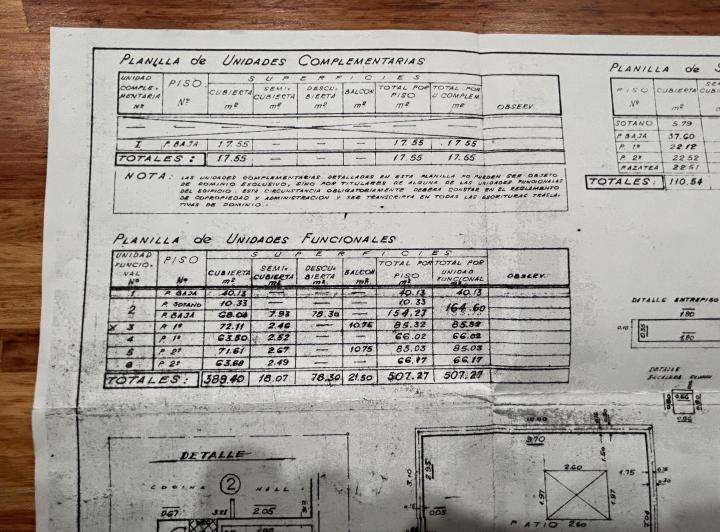 PLANILLA de UNIDADES COMPLEMENTARIAS
UNIDAD COMPLE- MENTARIA Nº PISO Nº SUPERFICIES
CUBIERTA m² SEMI- CUBIERTA m² DESCU- BIERTA m² BALCON m² TOTAL POR PISO m² TOTAL POR U COMPLEM. m² OBSERV.
I P. BAJA 17.55 — — — 17.55 17.55
TOTALES: 17.55 — — — 17.55 17.55
NOTA: LAS UNIDADES COMPLEMENTARIAS DETALLADAS EN ESTA PLANILLA NO PUEDEN SER OBJETO
DE DOMINIO EXCLUSIVO, SINO POR TITULARES DE ALGUNA DE LAS UNIDADES FUNCIONALES
DEL EDIFICIO. ESTA CIRCUNSTANCIA OBLIGATORIAMENTE DEBERA CONSTAR EN EL REGLAMENTO
DE COPROPIEDAD Y ADMINISTRACION Y SER TRANSCRIPTA EN TODAS LAS ESCRITURAS TRASLA-
TIVAS DE DOMINIO.
PLANILLA de UNIDADES FUNCIONALES
UNIDAD FUNCIO- NAL Nº PISO Nº SUPERFICIES
CUBIERTA m² SEMI- CUBIERTA m² DESCU- BIERTA m² BALCON m² TOTAL POR PISO m² TOTAL POR UNIDAD FUNCIONAL m² OBSERV.
1 P. BAJA 40.13 — — — 40.13 40.13
2 P. SOTANO 10.33 — — — 10.33 164.60
P. BAJA 68.04 7.93 78.30 — 154.27
X 3 P. 1º 72.11 2.46 — 10.75 85.32 85.32
4 P. 1º 63.50 2.52 — — 66.02 66.02
5 P. 2º 71.61 2.67 — 10.75 85.03 85.03
6 P. 2º 63.68 2.49 — — 66.17 66.17
TOTALES: 389.40 18.07 78.30 21.50 507.27 507.27
PLANILLA de S
PISO Nº CUBIERTA m²
SOTANO 5.79
P. BAJA 37.60
P. 1º 22.12
P. 2º 22.52
AZOTEA 22.51
TOTALES: 110.54
DETALLE ENTREPISO
1.80
0.10 0.35
4.80
DETALLE
0.80 0.60 0.80
0.86
DETALLE
COCINA 2 HALL
0.67 3.21 2.05
10.00
9.70
3.10 2.95
2.60
1.97 1.97
1.75
PATIO 2.60